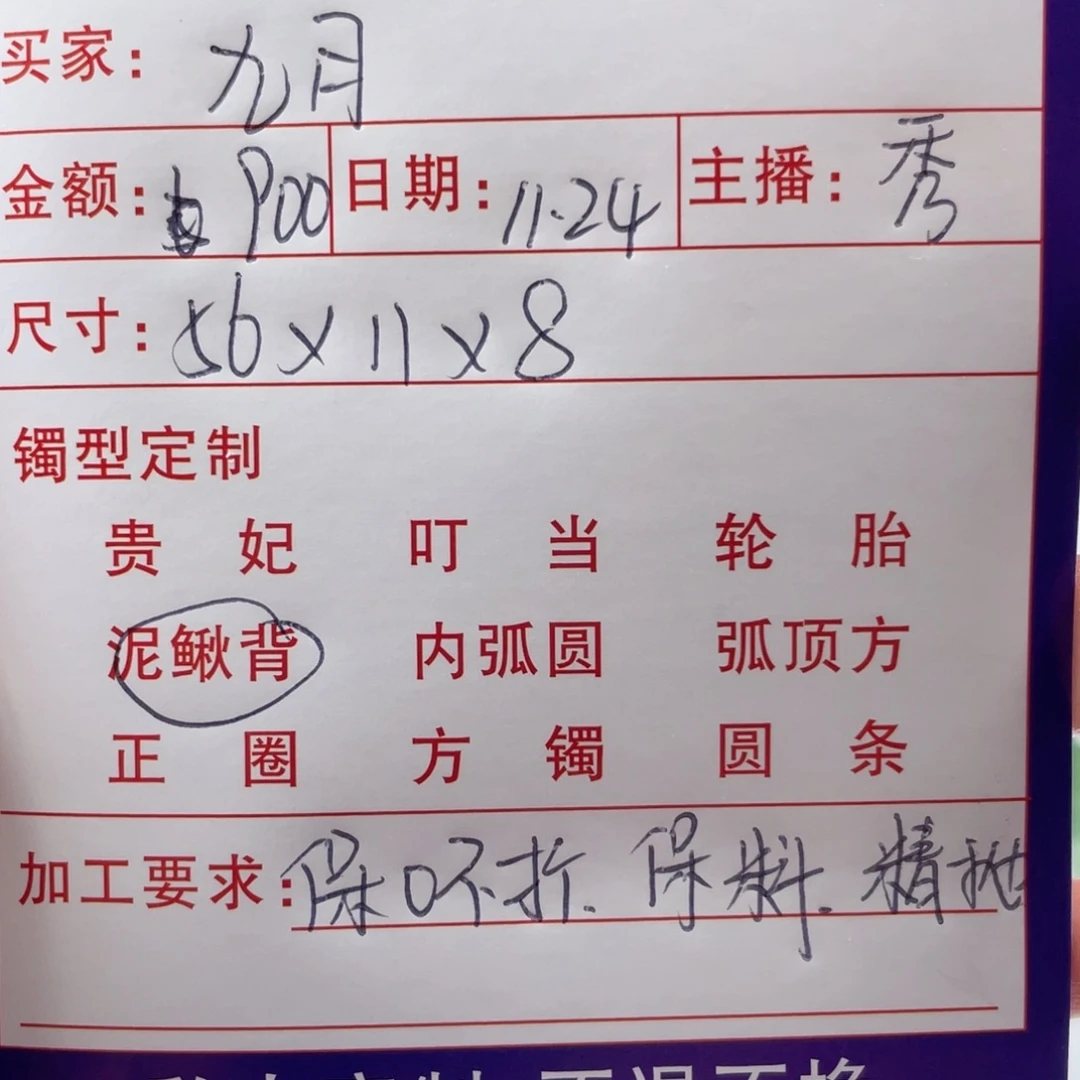 买家：九月
金额：900 日期：11.24 主播：秀
尺寸：56×11×8
镯型定制
贵妃 叮当 轮胎
泥鳅背 内弧圆 弧顶方
正圈 方镯 圆条
加工要求：保口不折.保料.精抛
定制 不退不换